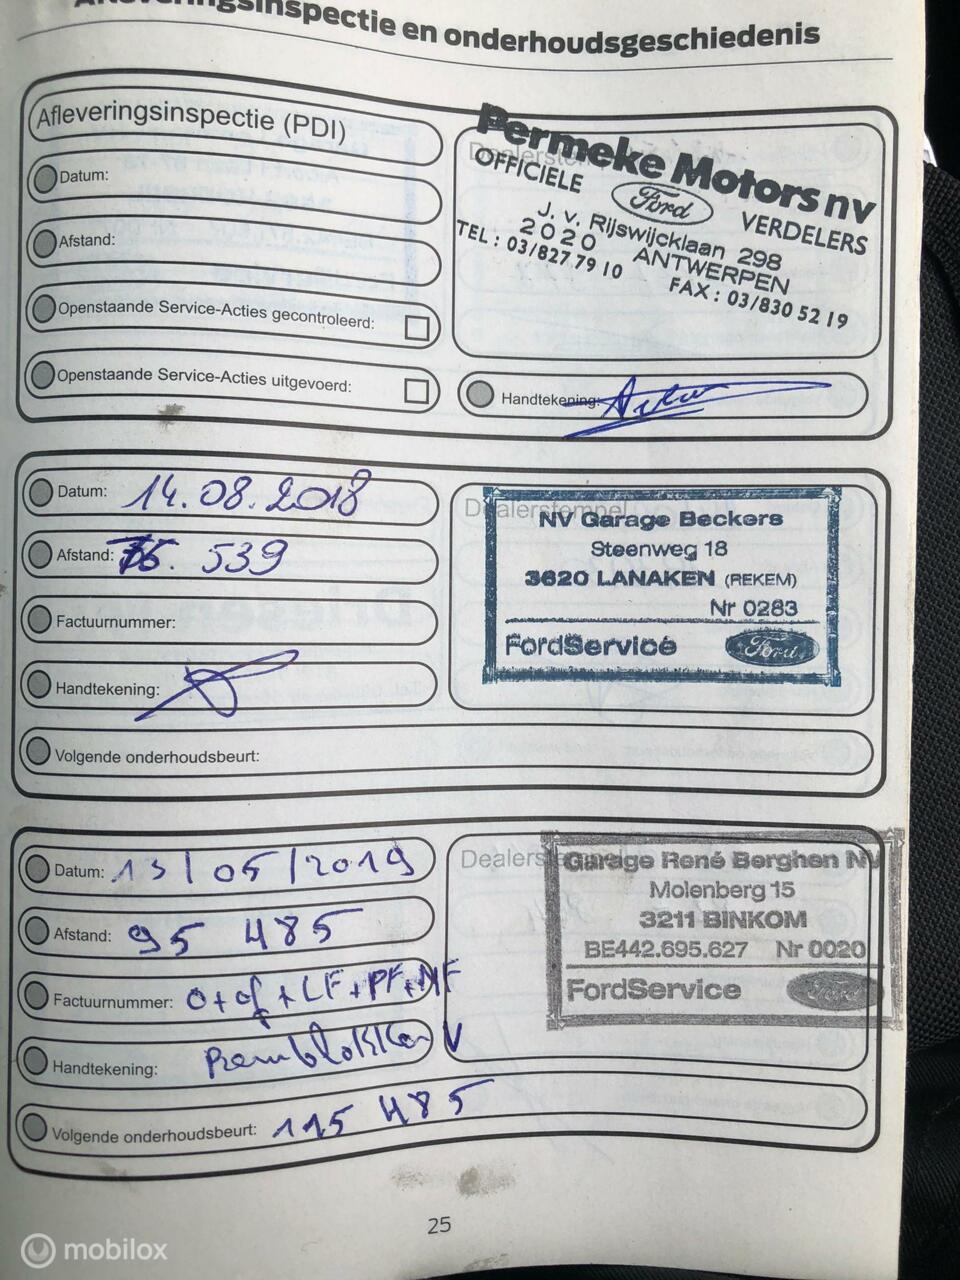 Afleveringsinspectie en onderhoudsgeschiedenis
Afleveringsinspectie (PDI)
Datum:
Afstand:
Openstaande Service-Acties gecontroleerd:
Openstaande Service-Acties uitgevoerd:
Dealerstempel
Permeke Motors nv
OFFICIELE Ford VERDELERS
J. v. Rijswijcklaan 298
2020 ANTWERPEN
TEL : 03/827 79 10
FAX : 03/830 52 19
Handtekening:
Datum: 14.08.2018
Afstand: 76.539
Factuurnummer:
Handtekening:
Volgende onderhoudsbeurt:
Dealerstempel
NV Garage Beckers
Steenweg 18
3620 LANAKEN (REKEM)
Nr 0283
FordService Ford
Datum: 13/05/2019
Afstand: 95 485
Factuurnummer: O+of+LF+PF+MF
Handtekening: Remblokken V
Volgende onderhoudsbeurt: 115 485
Dealerstempel
Garage René Berghen NV
Molenberg 15
3211 BINKOM
BE442.695.627 Nr 0020
FordService Ford
25
mobilox